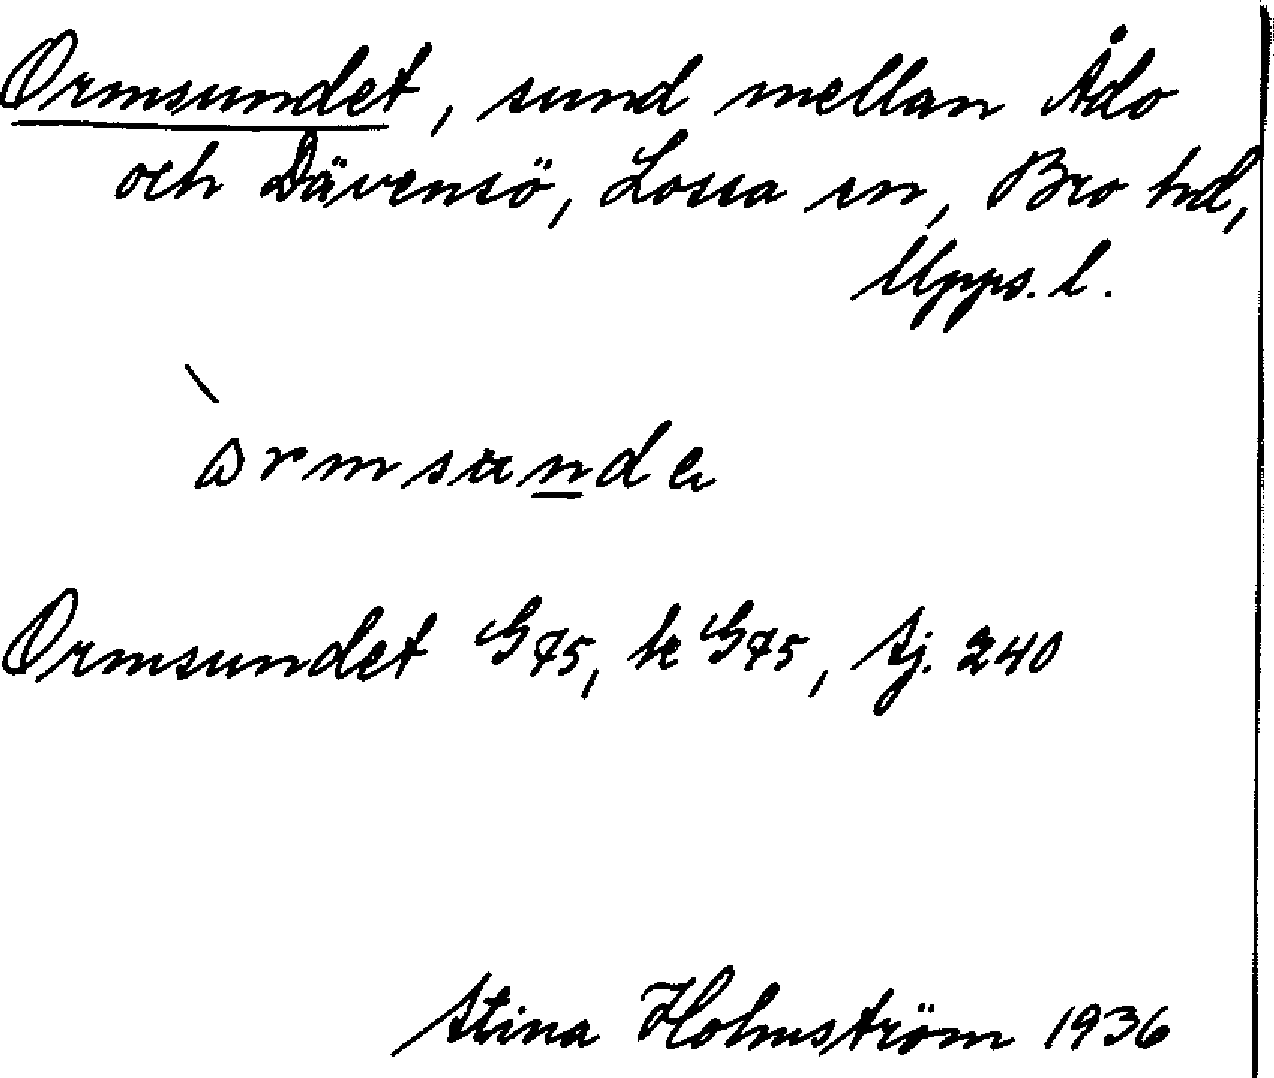 Ormsundet, sund mellan Ådö
och Dävensö, Lossa sn, Bro hd,
Upps. l.
ormsunde
Ormsundet G 75, k G 75, Sj. 240
Stina Holmström 1936